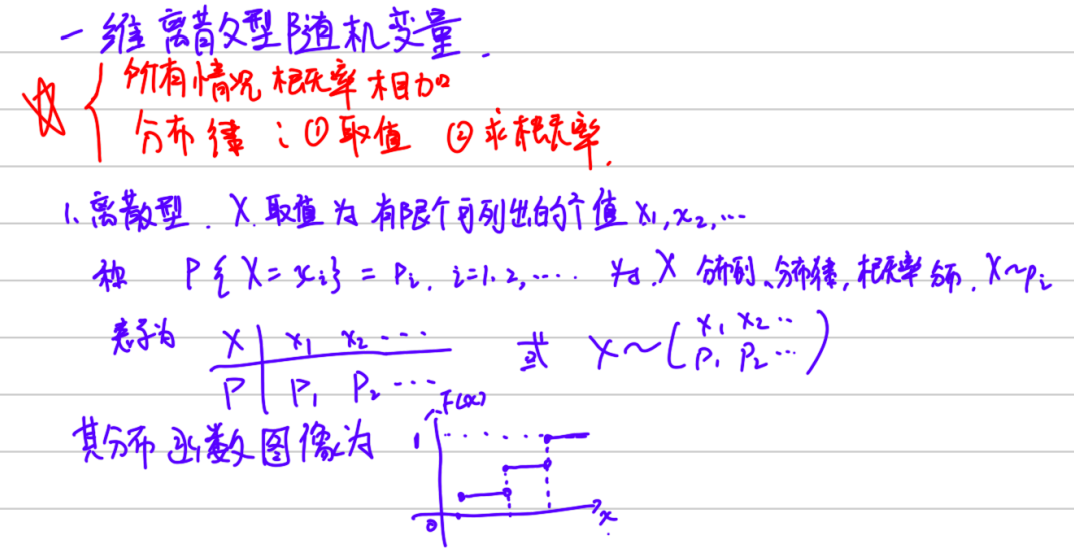 一维离散型随机变量.
☆ { 所有情况概率相加
分布律:①取值 ②求概率.
1.离散型. X取值为有限个可列出的个值 x₁,x₂,…
称 P{X=xᵢ}=pᵢ, i=1.2,…. 为.X 分布列、分布律,概率分布. X~pᵢ
表示为 X | x₁ x₂ … 或 X~(x₁ x₂ …
P | P₁ P₂ … P₁ P₂ …)
其分布函数图像为
F(x)
1
0 x